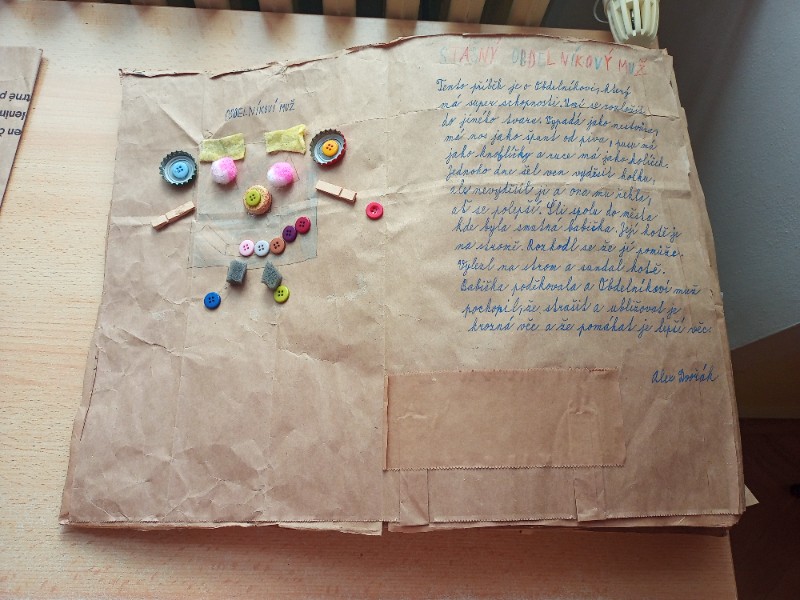 OBDELNÍKOVÍ MUŽ
ŠŤASNÝ OBDELNÍKOVÝ MUŽ
Tento příběh je o Obdelníkovi, který
má super schopnosti. Umí se rozložit
do jiného tvaru. Vypadá jako nestvůra,
má nos jako špunt od piva, pusu má
jako knoflíčky a ruce má jako kolíček.
Jednoho dne šel ven vyděsit holku,
ale nevyděsil je a ona mu řekla,
ať se polepší. Šli spolu do města
kde byla smutná babička. Její kotě je
na stromě. Rozhodl se že jí pomůže.
Vylezl na strom a sundal kotě.
Babička poděkovala a Obdelníkoví muž
pochopil, že strašit a ubližovat je
hrozná věc a že pomáhat je lepší věc.
Alex Dvořák